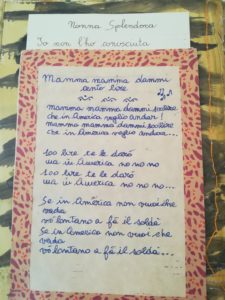 Nonna Splendora
Io non l'ho conosciuta
Mamma mamma dammi
cento lire
mamma mamma dammi 100 lire
che in America voglio andar!
mamma mamma dammi 100 lire
che in America voglio andar...
100 lire te le darò
ma in America no no no
100 lire te le darò
ma in America no no no...
Se in America non vuoi che
vada
vò lontano a fà il soldà
Se in America non vuoi che
vada
vò lontano a fà il soldà...